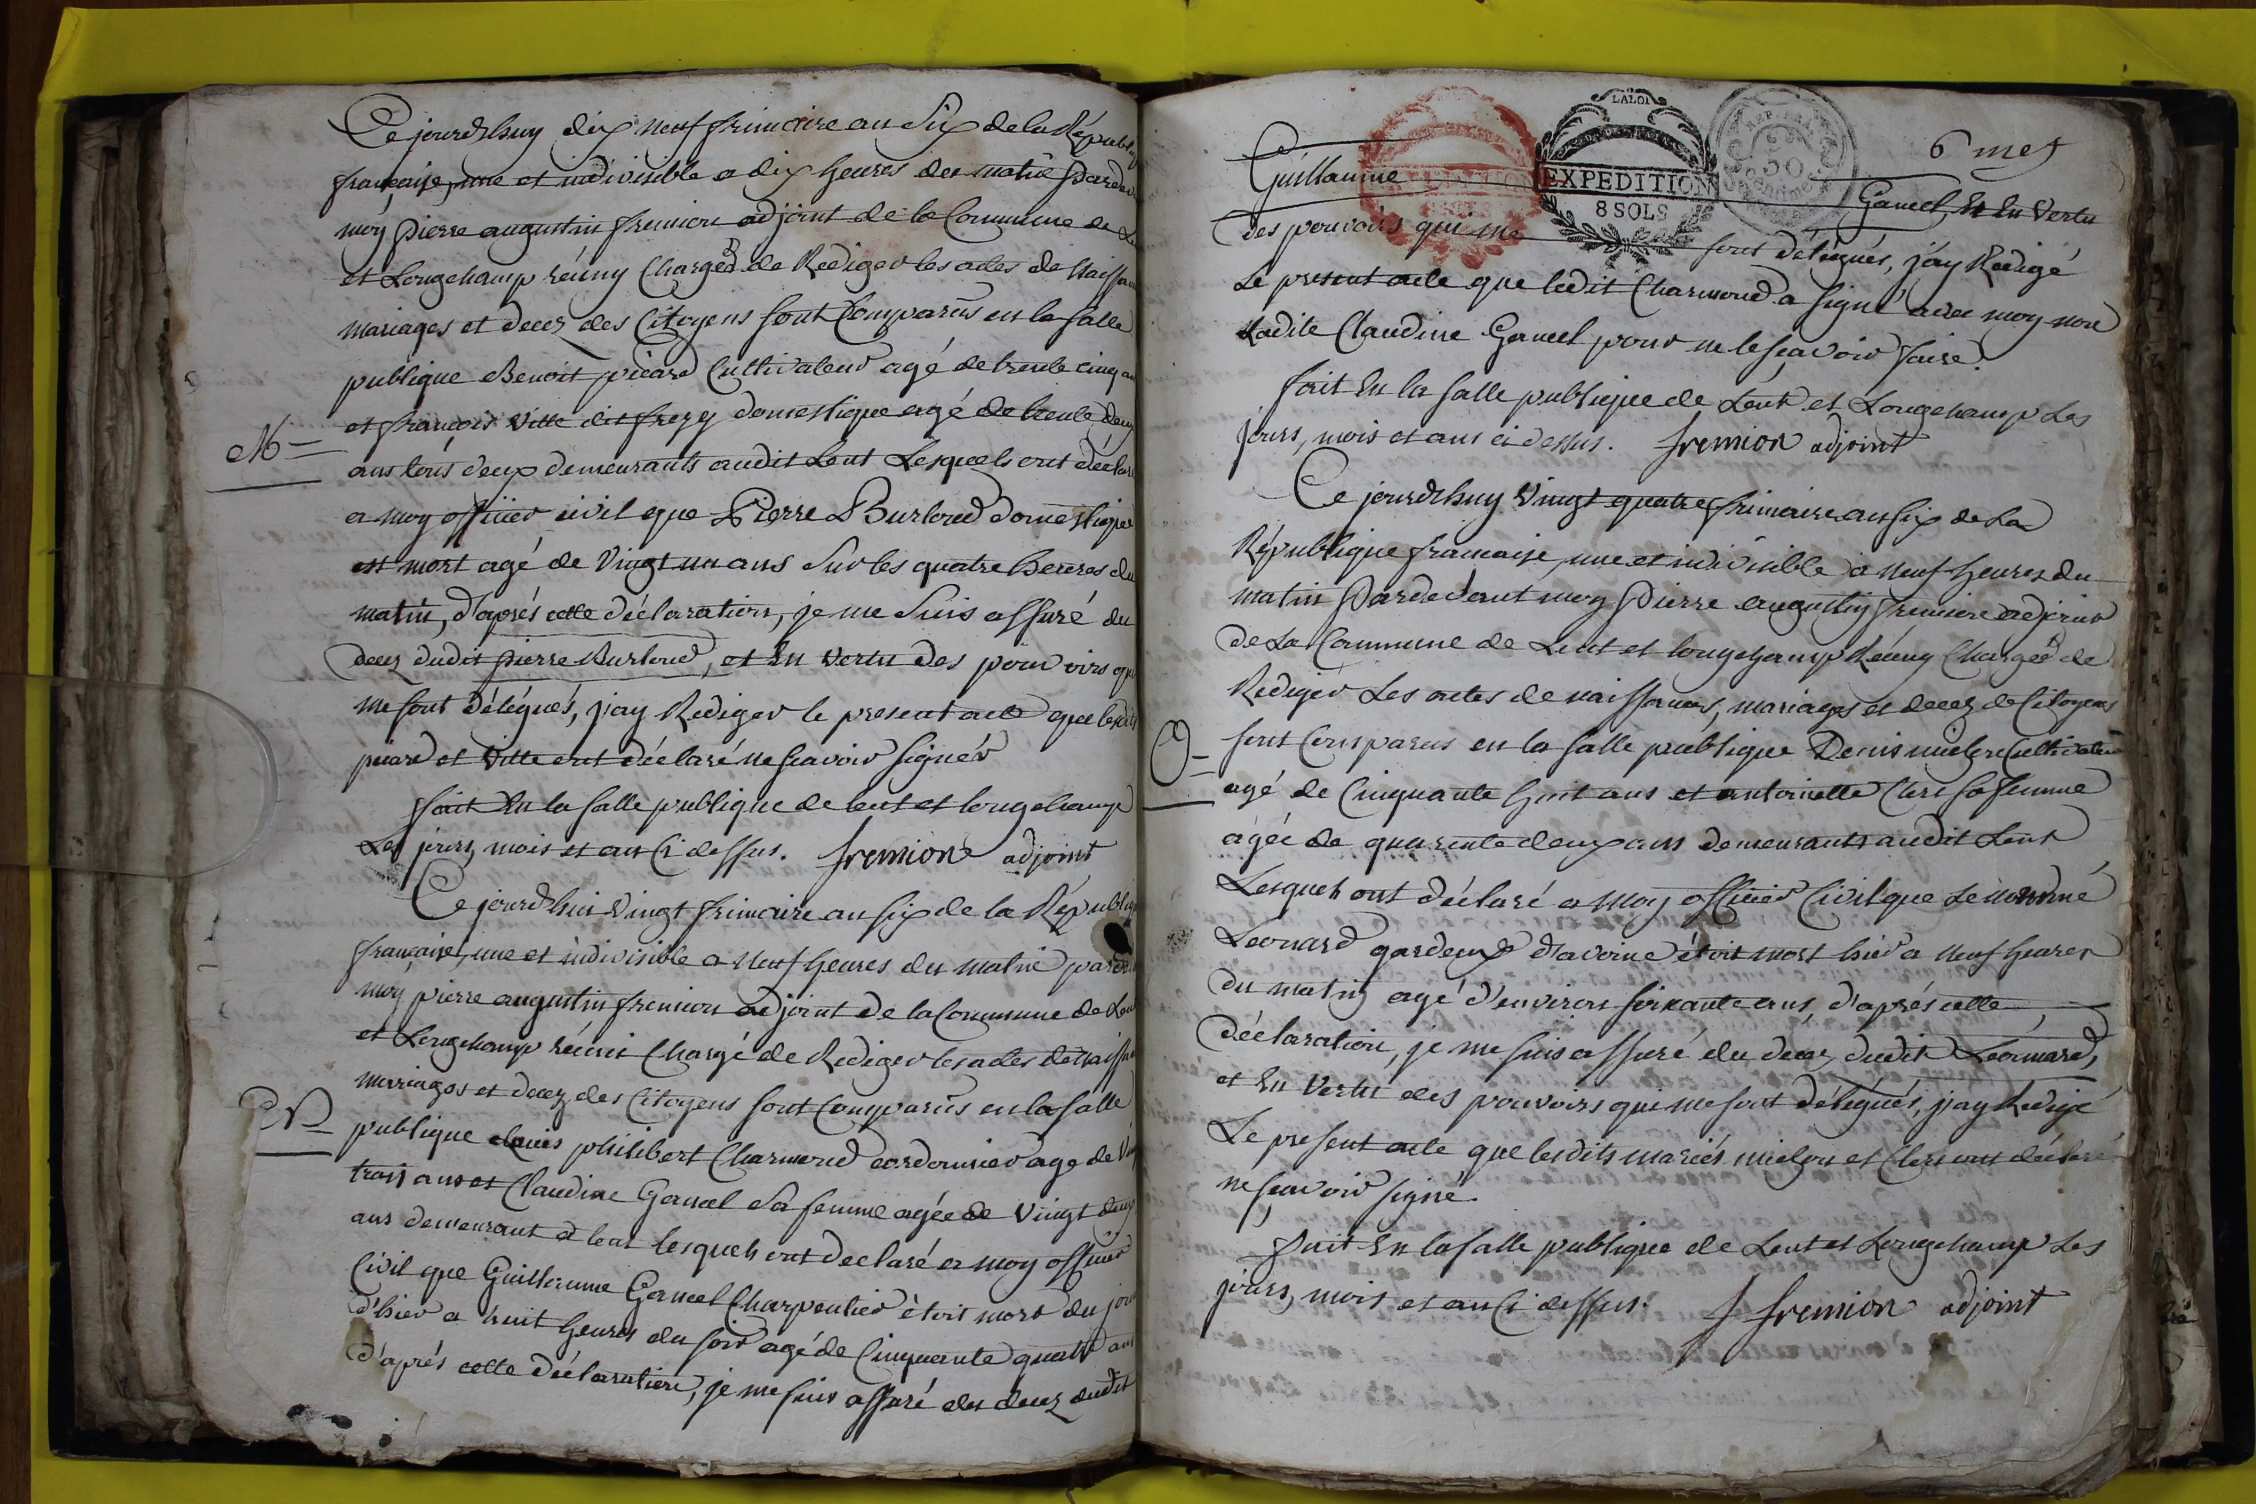 Ce jourdhuy dix neuf frimaire an six de la Républi
française, une et indivisible a dix heures des matin Pardev
moy Pierre augustin fremion adjoint de la Commune de Le
et Longchamp réuny Chargé de Rediger les actes de Naissan
mariages et decez des Citoyens sont Comparûs en la salle
publique Benoit picard Cultivateur agé de trente cinq an
et françois Vitte dit frezy domestique agé de trente deux
M=
ans tous deux demeurants audit Lent Lesquels ont déclar
a moy officier civil que Pierre Burloud domestique
est mort agé de Vingt un ans Sur les quatre heures du
matin, d'aprés cette déclaration, je me Suis assuré du
decez dudit pierre Burloud, et En Vertu des pouvoirs qui
me sont délégués, j'ay Rediger le present acte que lesdits
picard et Vitte ont déclaré ne scavoir signér
fait En la salle publique de lent et longchamp
Les jours, mois et an Ci dessus. fremion adjoint
Ce jourdhui Vingt frimaire an six de la Républiq
française, une et indivisible a Neuf heures du matin pardev
moy pierre augustin fremion adjoint de la Commune de Len
et Longchamp réunis Chargé de Rediger les actes de naissan
mariages et decez des Citoyens sont Comparûs en la salle
N=
publique Louis philibert Charmond cordonnier age de Vin
trois ans et Claudine Gancel Sa femme agée de Vingt deux
ans demeurant a lent lesquels ont declaré a moy officier
Civil que Guillaume Gancel Charpentier étoit mort du jour
d'hier a huit heures du soir agé de Cinquante quatre ans
d'aprés cette déclaration, je me suis assuré du decez dudit
6 me
LA LOI
REP. FRA.
50
EXPEDITION
8 SOLS
Guillaume Gancel, Et En Vertu
des pouvoirs qui me sont délégués, j'ay Redigé
Le present acte que ledit Charmond a signé avec moy non
Ladite Claudine Gancel pour ne le scavoir faire.
fait En la salle publique de Lent et Longchamp Les
jours, mois et ans ci dessus. fremion adjoint
Ce jourdhuy Vingt quatre frimaire an six de La
République francaise, une et indivisible a neuf heures du
matin Pardevant moy Pierre augustin fremion adjoint
de La Commune de Lent et longchamp Réuny Chargé de
Rediger Les actes de naissances, mariages et decez de Citoyens
O=
sont Comparus en la salle publique Denis Cultivateur
agé de Cinquante huit ans et antoinette Clerc sa femme
agée de quarente deux ans demeurants audit Lent
Lesquels ont déclaré a moy officier Civil que Le nommé
Leonard gardeux d'avoine étoit mort hier a neuf heures
du matin agé d'environ soixante ans, d'aprés cette
déclaration, je me suis assuré du decez dudit Léonard,
et En Vertu des pouvoirs qui me sont délégués, j'ay Redigé
Le present acte que lesdits mariés et Clerc ont déclaré
ne scavoir signé.
fait En la salle publique de Lent et Longchamp Les
jours, mois et an Ci dessus. fremion adjoint